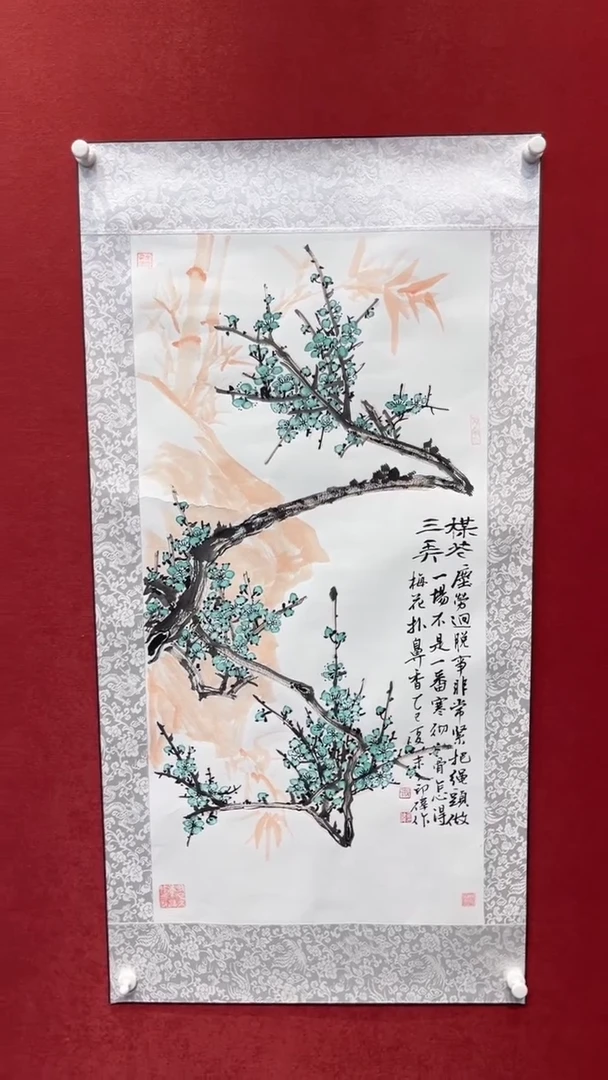 楳花
三弄
塵勞迴脫事非常緊把繩頭做
一場不是一番寒彻骨怎得
梅花扑鼻香乙巳夏末
作